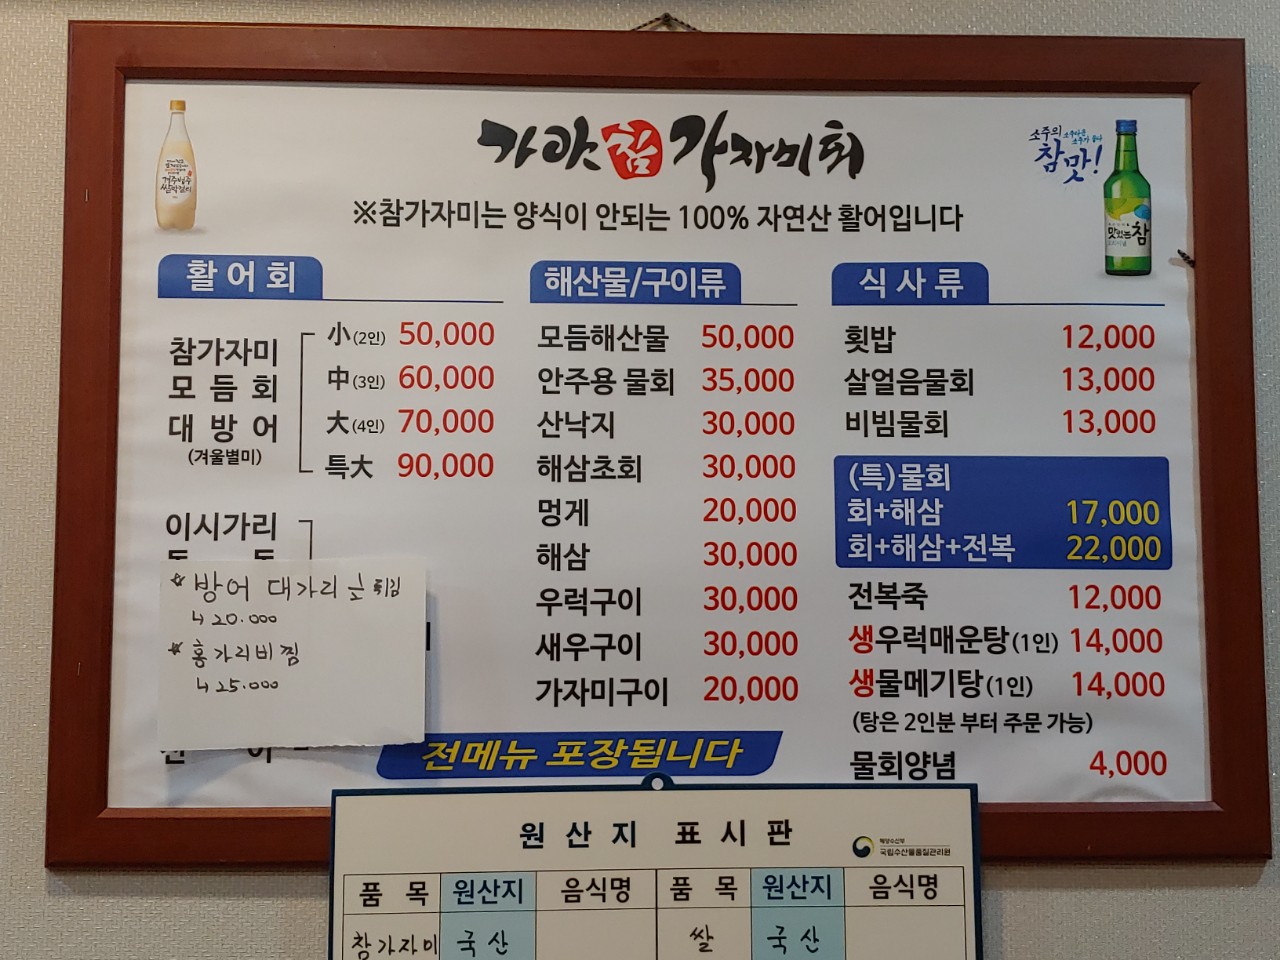 가안참가자미회
※참가자미는 양식이 안되는 100% 자연산 활어입니다
소주의
참맛!
맛있는참
활어회
참가자미
모듬회
대방어
(겨울별미)
小(2인) 50,000
中(3인) 60,000
大(4인) 70,000
특大 90,000
이시가리
☆ 방어 대가리
↳ 20.000
☆ 홍가리비찜
↳ 25.000
해산물/구이류
모듬해산물 50,000
안주용 물회 35,000
산낙지 30,000
해삼초회 30,000
멍게 20,000
해삼 30,000
우럭구이 30,000
새우구이 30,000
가자미구이 20,000
식사류
횟밥 12,000
살얼음물회 13,000
비빔물회 13,000
(특)물회
회+해삼 17,000
회+해삼+전복 22,000
전복죽 12,000
생우럭매운탕(1인) 14,000
생물메기탕(1인) 14,000
(탕은 2인분 부터 주문 가능)
물회양념 4,000
전메뉴 포장됩니다
원산지 표시판
해양수산부
국립수산물품질관리원
품목 원산지 음식명 품목 원산지 음식명
참가자미 국산 쌀 국산